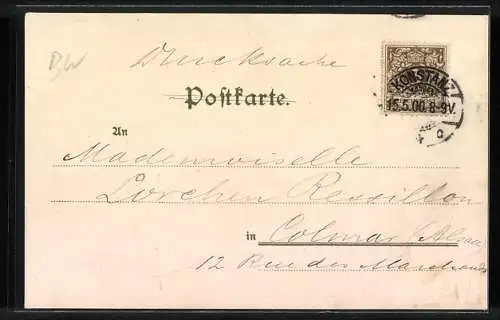 BW
Drucksache
Postkarte.
KONSTANZ
15.5.00.8-9V.
An
Mademoiselle
Lorchen Ressillon
in Colmar (Alsace)
12 Rue des Marchands